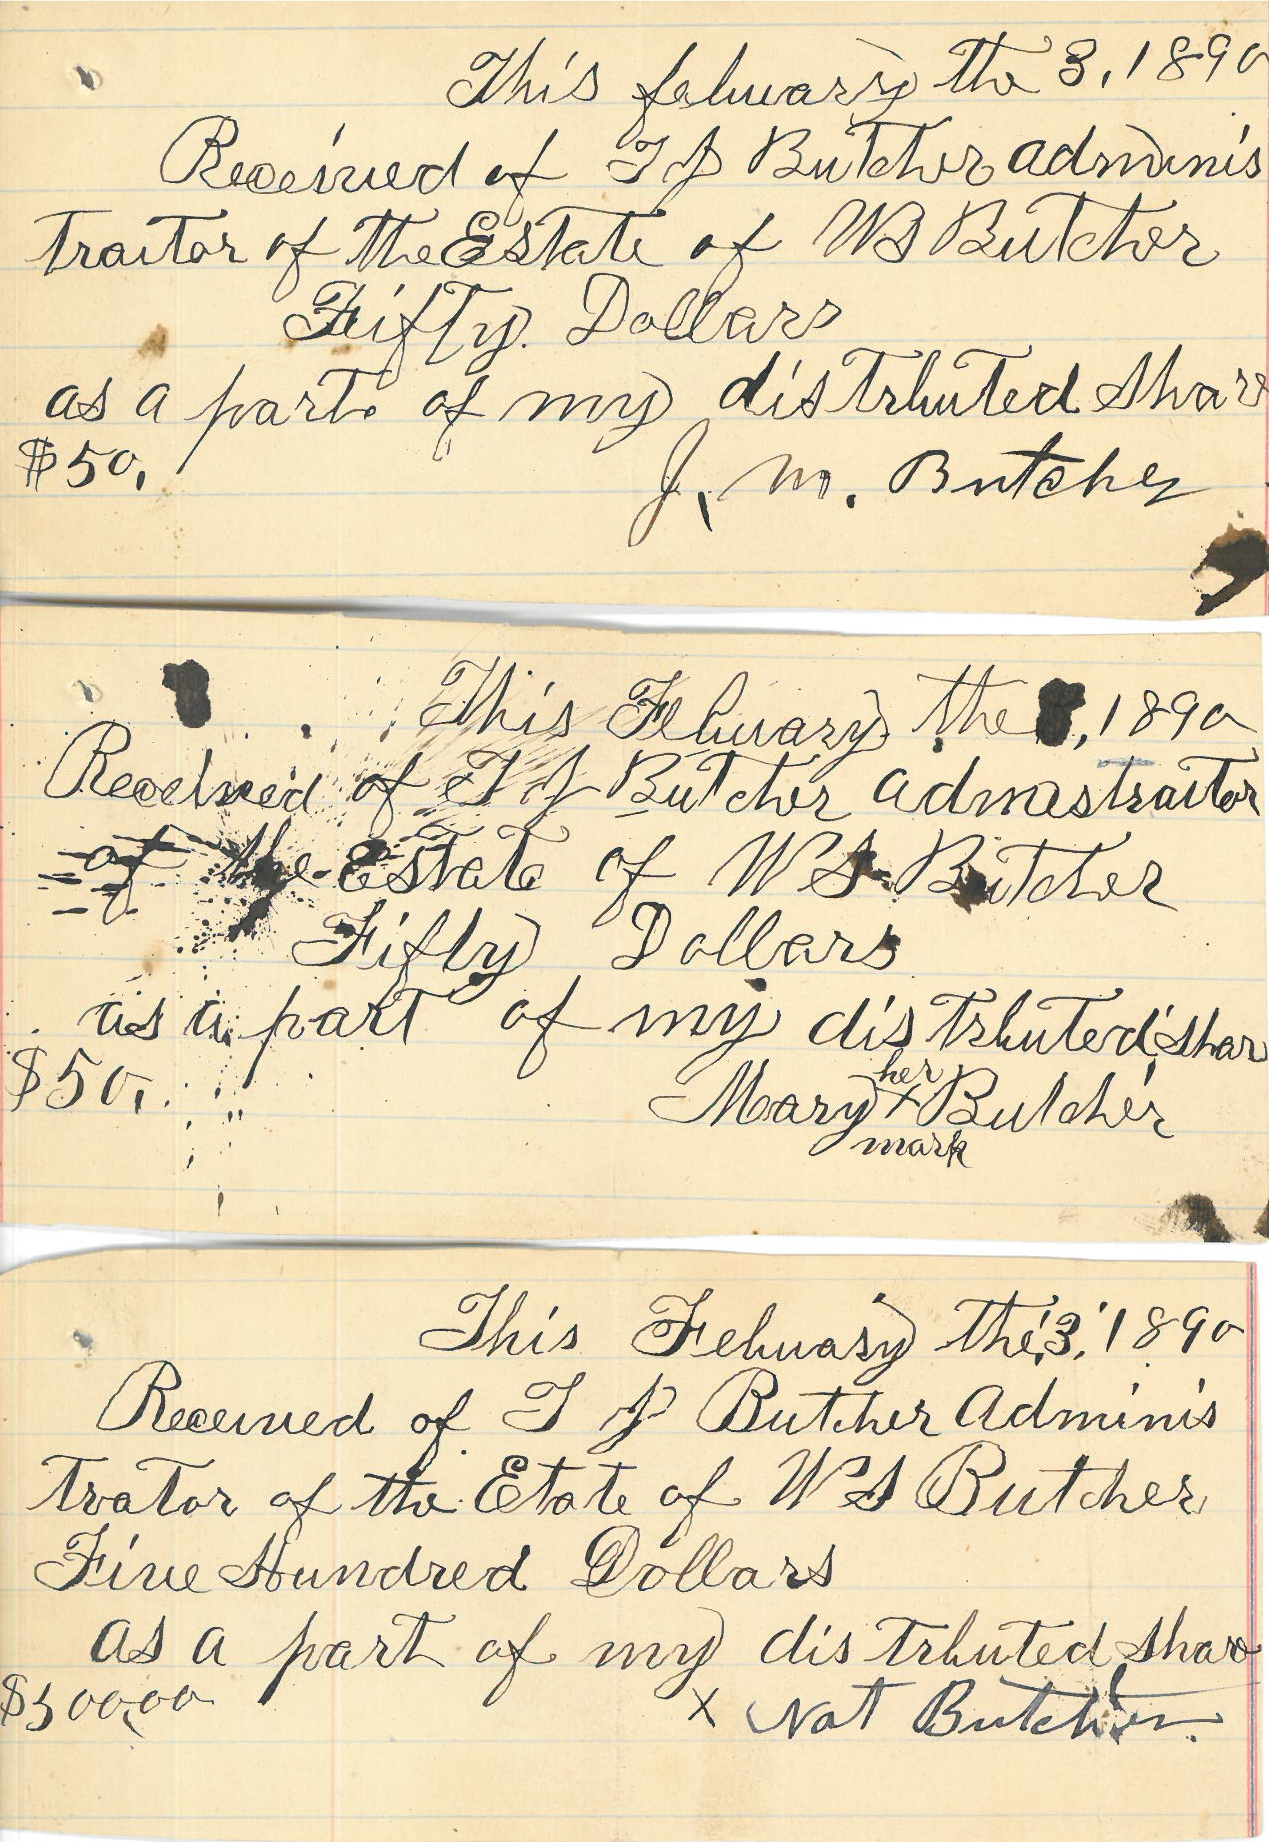 This febuary the 3, 1890
Received of T J Butcher adminis
traitor of the Estate of WS Butcher
Fifty Dollars
as a part of my distrbuted share
$50,
J. M. Butcher
This Febuary the , 1890
Received of T J Butcher admestraitor
of the Estate of W S Butcher
Fifty Dollars
as a part of my distrbuted shar
$50,
her
Mary x Butcher
mark
This Febuary the 3, 1890
Received of T J Butcher adminis
trator of the Etate of W S Butcher
Five Hundred Dollars
as a part of my distrbuted share
$500,00
x Nat Butcher